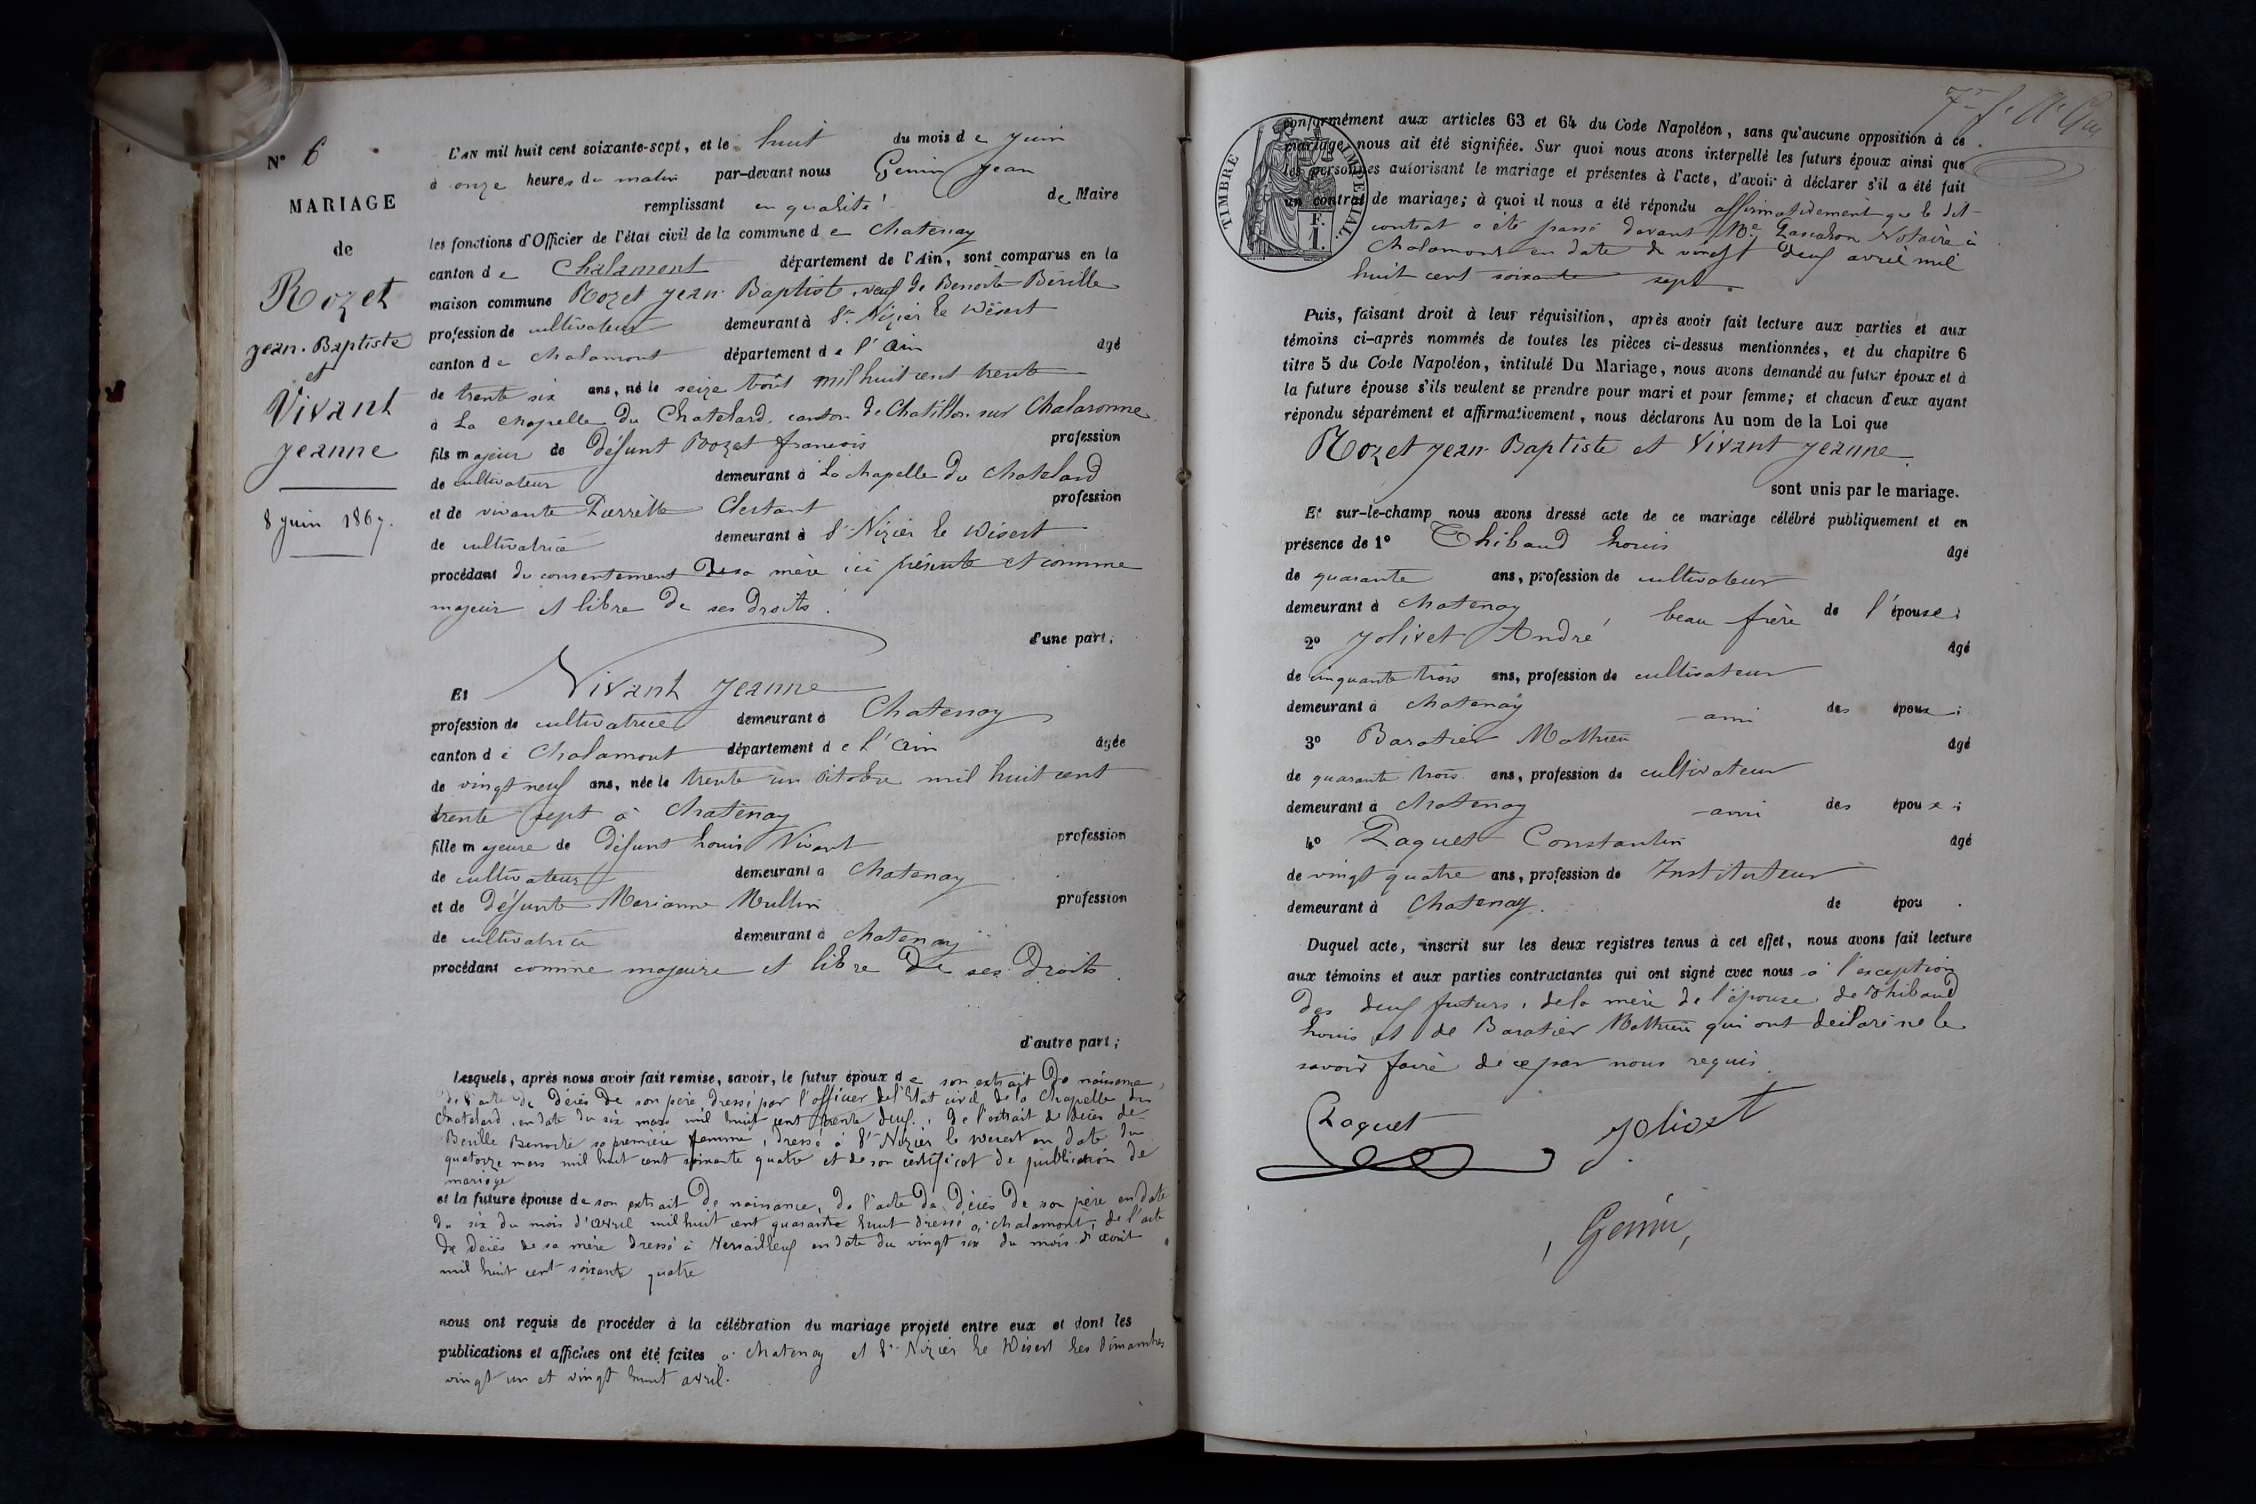 N° 6
MARIAGE
de
Rozet
Jean-Baptiste
et
Vivant
Jeanne
8 juin 1867.
L'AN mil huit cent soixante-sept, et le huit du mois de juin
à onze heures du matin par-devant nous Genin Jean
remplissant en qualité de Maire
les fonctions d'Officier de l'état civil de la commune de Chatenay
canton de Chalamont département de l'Ain, sont comparus en la
maison commune Rozet Jean Baptiste, veuf de Benoite Bérille
profession de cultivateur demeurant à St Nizier le Désert
canton de Chalamont département de l'Ain âgé
de trente six ans, né le seize août mil huit cent trente
à La Chapelle du Chatelard, canton de Chatillon sur Chalaronne
fils majeur de défunt Rozet françois profession
de cultivateur demeurant à La Chapelle du Chatelard
et de vivante Pierrette profession
de cultivatrice demeurant à St Nizier le Désert
procédant du consentement de sa mère ici présente et comme
majeur et libre de ses droits.
d'une part;
Et Vivant Jeanne
profession de cultivatrice demeurant à Chatenay
canton de Chalamont département de l'Ain âgée
de vingt neuf ans, née le trente un octobre mil huit cent
trente sept à Chatenay
fille majeure de défunt Louis Vivant profession
de cultivateur demeurant à Chatenay
et de défunte Marianne Mullin profession
de cultivatrice demeurant à Chatenay
procédant comme majeure et libre de ses droits.
d'autre part;
Lesquels, après nous avoir fait remise, savoir, le futur époux de son extrait de naissance,
de l'acte de décès de son père dressé par l'officier de l'Etat civil de la Chapelle du
Chatelard, en date du six mars mil huit cent trente deux, de l'extrait de décès de
Berille Benoite sa première femme, dressé à St Nizier le Desert en date du
quatorze mars mil huit cent soixante quatre et de son certificat de publication de
mariage
et la future épouse de son extrait de naissance, de l'acte de décès de son père en date
du six du mois d'avril mil huit cent quarante huit dressé à Chalamont, de l'acte
de décès de sa mère dressé à Versailleux en date du vingt six du mois d'avril
mil huit cent soixante quatre
nous ont requis de procéder à la célébration du mariage projeté entre eux et dont les
publications et affiches ont été faites à Chatenay et St Nizier le Désert les dimanches
vingt un et vingt huit avril.
TIMBRE IMPÉRIAL
F.
1.
conformément aux articles 63 et 64 du Code Napoléon, sans qu'aucune opposition à ce
mariage nous ait été signifiée. Sur quoi nous avons interpellé les futurs époux ainsi que
les personnes autorisant le mariage et présentes à l'acte, d'avoir à déclarer s'il a été fait
un contrat de mariage; à quoi il nous a été répondu affirmativement que le dit
contrat a été passé devant Me Notaire à
Chalamont en date du vingt deux avril mil
huit cent soixante sept.
Puis, faisant droit à leur réquisition, après avoir fait lecture aux parties et aux
témoins ci-après nommés de toutes les pièces ci-dessus mentionnées, et du chapitre 6
titre 5 du Code Napoléon, intitulé Du Mariage, nous avons demandé au futur époux et à
la future épouse s'ils veulent se prendre pour mari et pour femme; et chacun d'eux ayant
répondu séparément et affirmativement, nous déclarons Au nom de la Loi que
Rozet Jean-Baptiste et Vivant Jeanne
sont unis par le mariage.
Et sur-le-champ nous avons dressé acte de ce mariage célébré publiquement et en
présence de 1° Thibaud Louis âgé
de quarante ans, profession de cultivateur
demeurant à Chatenay beau frère de l'épouse;
2° Jolivet André âgé
de cinquante trois ans, profession de cultivateur
demeurant à Chatenay ami des époux;
3° Baratier Mathieu âgé
de quarante trois ans, profession de cultivateur
demeurant à Chatenay ami des époux;
4° Paquet Constantin âgé
de vingt quatre ans, profession de Instituteur
demeurant à Chatenay. de épou .
Duquel acte, inscrit sur les deux registres tenus à cet effet, nous avons fait lecture
aux témoins et aux parties contractantes qui ont signé avec nous à l'exception
des deux futurs, de la mère de l'épouse, de Thibaud
Louis et de Baratier Mathieu qui ont déclaré ne le
savoir faire de ce par nous requis.
Paquet Jolivet
Genin